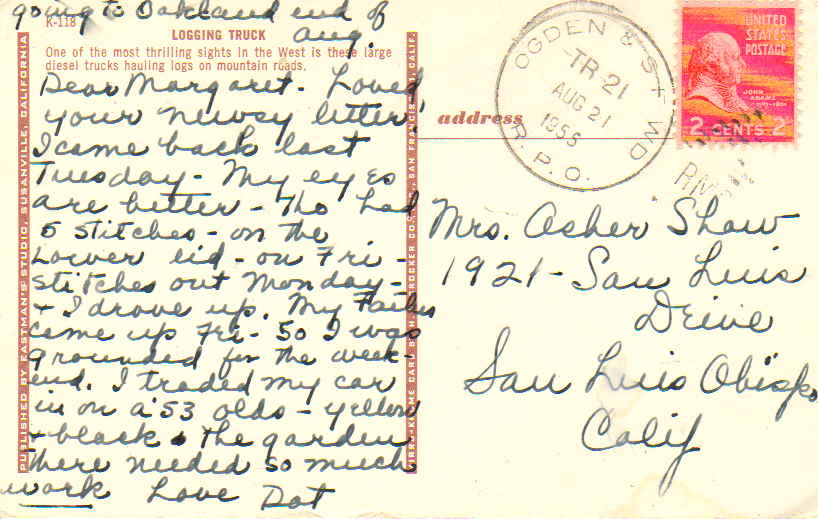 going to Oakland end of
Aug.
K-118
LOGGING TRUCK
One of the most thrilling sights in the West is these large
diesel trucks hauling logs on mountain roads.
Dear Margaret - Loved
your newsy letter!
I came back last
Tuesday - My eyes
are better - Tho had
5 stitches - on the
Lower lid - on Fri -
stitches out Monday -
+ I drove up. My Father
came up Fri - So I was
grounded for the week-
end. I traded my car
in on a '53 olds - yellow
+ black & the garden
There needed so much
work Love Dot
PUBLISHED BY EASTMAN'S STUDIO, SUSANVILLE, CALIFORNIA
MIRRO-KROME CARD BY H. S. CROCKER CO., INC., SAN FRANCISCO 1, CALIF.
address
OGDEN & S F W D
TR 21
AUG 21
1955
R. P. O.
RM
UNITED
STATES
POSTAGE
JOHN
ADAMS
1797-1801
2 CENTS 2
Mrs. Asher Shaw
1921 - San Luis
Drive
San Luis Obispo
Calif